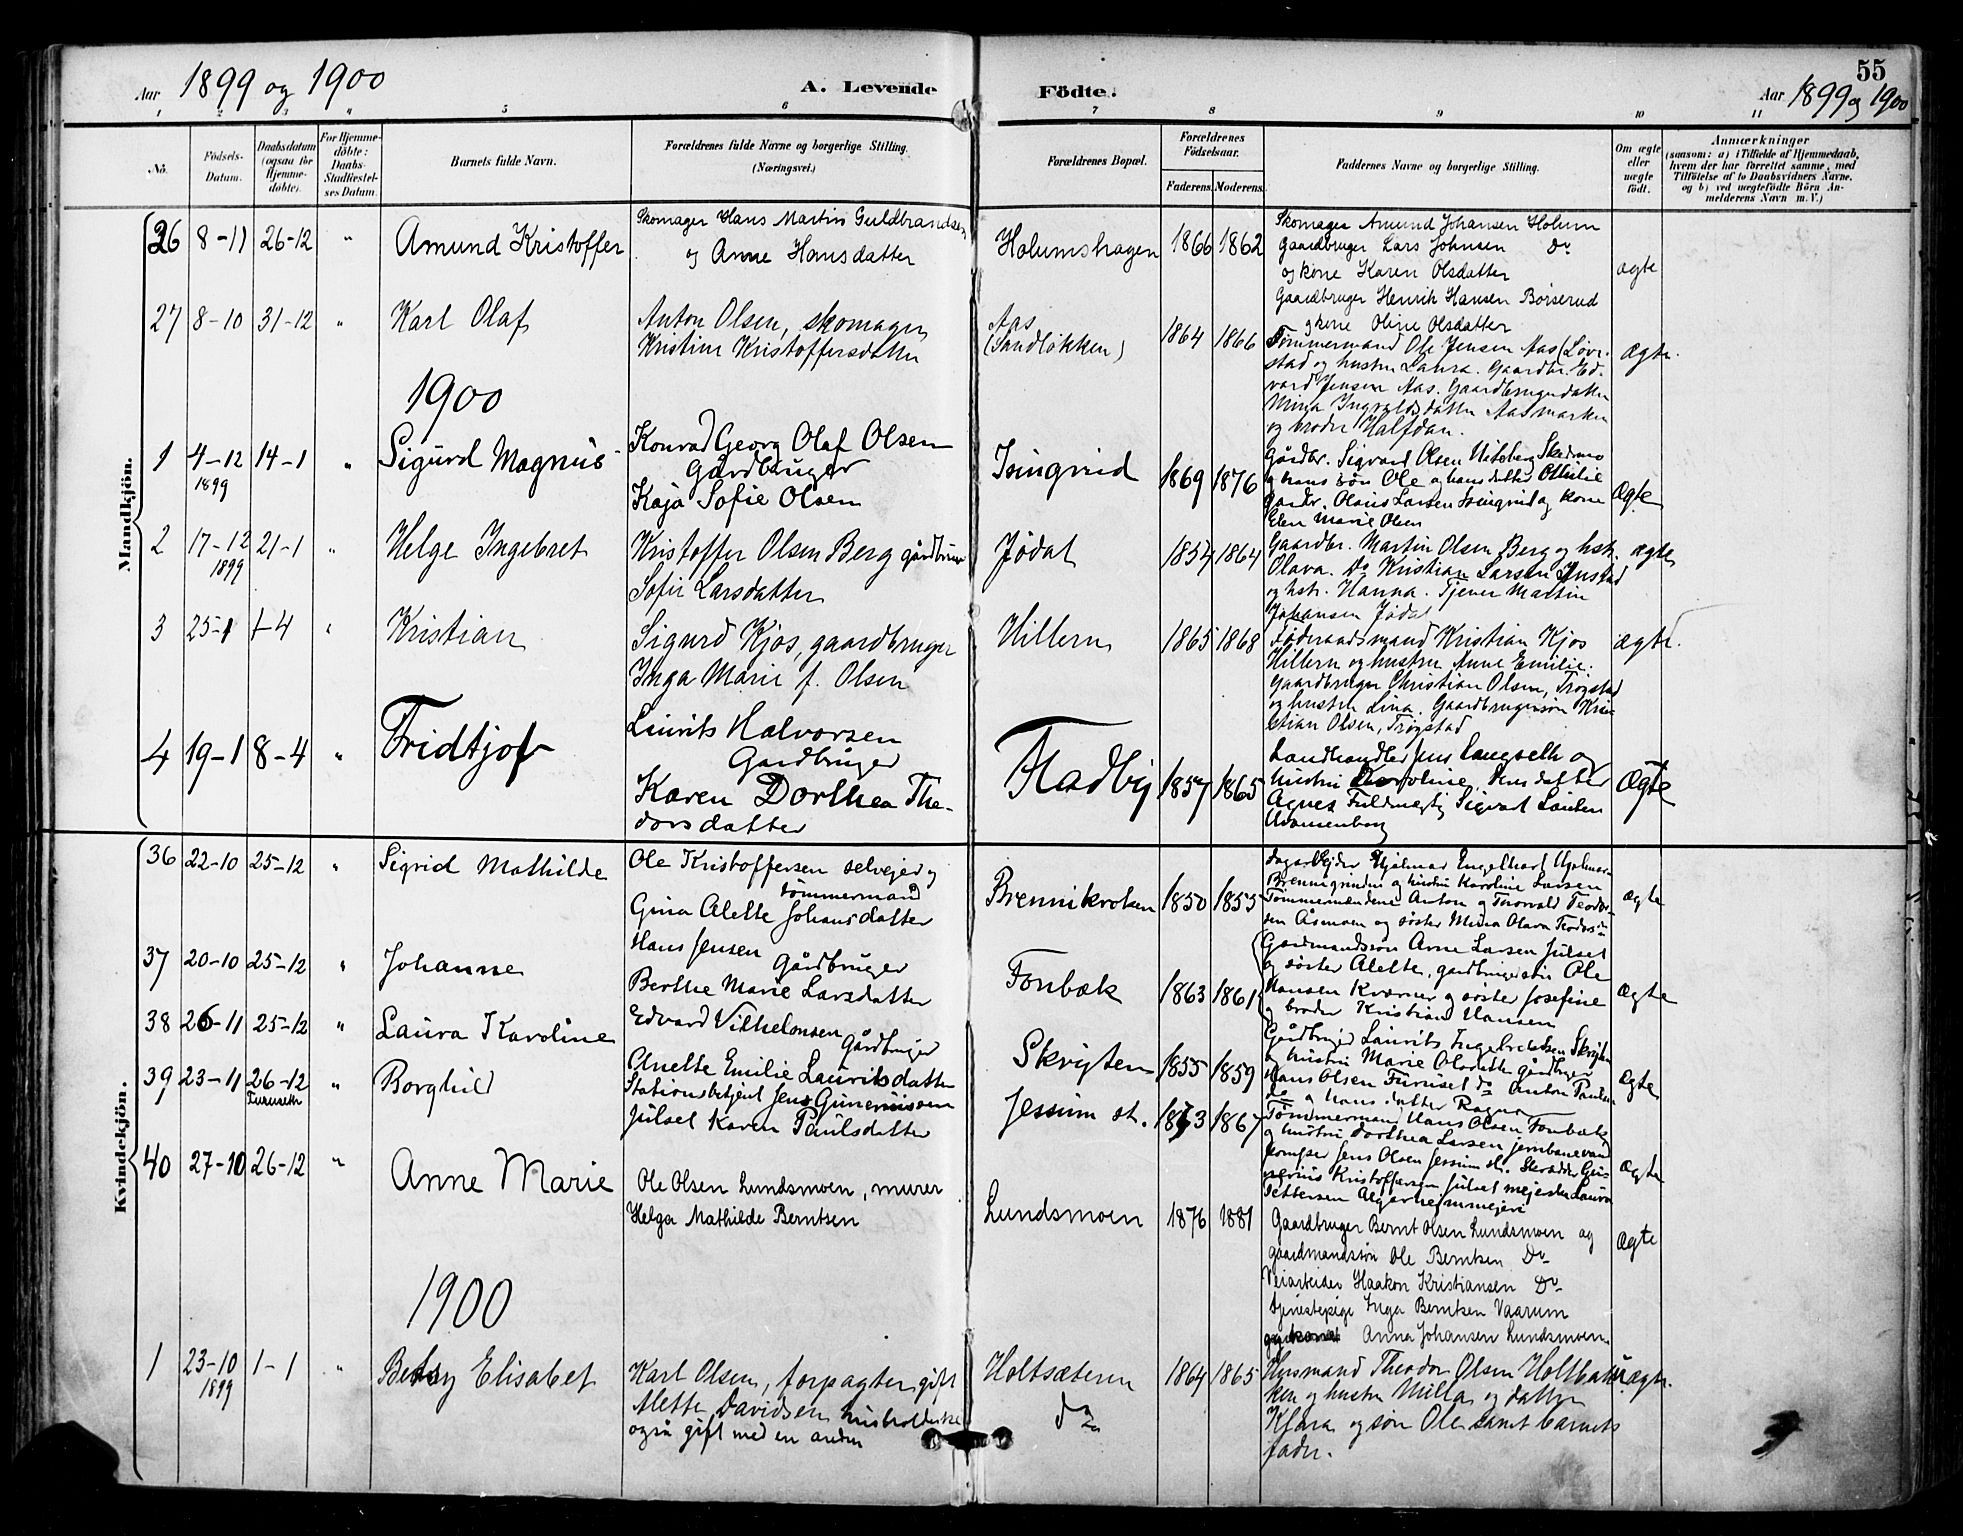 55
Aar 1899 og 1900
A. Levende Födte.
Aar 1899 og 1900
1 2 3 4 5 6 7 8 9 10 11
No.
Födsels-Datum.
Daabsdatum (ogsaa for Hjemmedöbte).
For Hjemmedöbte: Daabs-Stadfæstelses Datum.
Barnets fulde Navn.
Forældrenes fulde Navne og borgerlige Stilling. (Næringsvei.)
Forældrenes Bopæl.
Forældrenes Födselsaar.
Faderens. Moderens.
Faddernes Navne og borgerlige Stilling.
Om ægte eller uægte födt.
Anmærkninger
(saasom: a) i Tilfælde af Hjemmedaab, hvem der har forrettet samme, med Tilföielse af to Daabsvidners Navne, og b) ved uægtefödte Börn Anmelderens Navn m. V.)
Mandkjön.
26 8-11 26-12 " Amund Kristoffer
Skomager Hans Martin Guldbrandsen
og Anne Hansdatter
Holumshagen 1866 1862
Skomager Amund Johansen Holum
Gaardbruger Lars Johnsen Do
og kone Karen Olsdatter
Gaardbruger Henrik Hansen Börserud
og kone Oline Olsdatter
ægte
27 8-10 31-12 " Karl Olaf
Anton Olsen, skomager
Kristine Kristoffersdatter
Aas
(Sandløkken)
1864 1866
Tømmermand Ole Jensen Aas (Løvstad
og hustru Laura. Gaardbr. Edvard
Jensen Aas. Gaardbrugerdatter
Mina Ingvaldsdatter Aasmarken
og broder Halfdan.
ægte.
1900
1 4-12 1899 14-1 " Sigurd Magnus
Konrad Georg Olaf Olsen
Gårdbruger
Kaja Sofie Olsen
Isingrud 1869 1876
Gårdbr. Sigvard Olsen Skedsmo
og hans sön Ole og hans datter Othilie
Gardbr. Olaus Larsen Isingrud og kone
Elen Marie Olsen
ægte
2 17-12 1899 21-1 " Helge Ingebret
Kristoffer Olsen Berg gårdbruger
Sofie Larsdatter
Jødal 1857 1864
Gaardbr. Martin Olsen Berg og hstr.
Olava. Do Kristian Larsen
og hstr. Hanna. Tjener Martin
Johansen Jødal
ægte
3 25-1 1-4 " Kristian
Sigurd Kjos, gaardbruger
Inga Marie f. Olsen
Hillern 1865 1868
Føderaadsmand Kristian Kjos
Hillern og hustru Anne Emilie.
Gaardbruger Christian Olsen, Trøgstad
og hustru Lina. Gaardbrugersøn Kristian
Olsen, Trøgstad
ægte.
4 19-1 8-4 " Fridtjof
Laurits Halvorsen
Gardbruger
Karen Dorthea Theodorsdatter
Fladby 1857 1865
Landhandler Jens Langseth og
hustru Karoline, Hans datter
Agnes Fuldmægtig Sigvart
ægte
Kvindekjön.
36 22-10 25-12 " Sigrid Mathilde
Ole Kristoffersen selvejer og
tömmermand
Gina Alette Johansdatter
Brennikroken 1850 1855
Dagarbejder Hjalmar Engelhart
og hustru Karoline Larsen
Tömmermændene Anton og Thorvald
Åsmoen og søster Mina Olava
ægte
37 20-10 25-12 " Johanne
Hans Jensen
Gårdbruger
Berthe Marie Larsdatter
Fonbæk 1863 1861
Gardmandssön Arne Larsen Julset
og söster Alette, gardbrugersön Ole
Hansen Kværner og söster Josefine
og broder Kristian Hansen
ægte
38 26-11 25-12 " Laura Karoline
Edvard Vilhelmsen
Gårdbruger
Anette Emilie Lauritsdatter
Skrigten 1855 1859
Gårdbruger Laurits Ingebretsen Skrigten
og hustru Marie Olsdatter gårdbruger
Hans Olsen Furuset do Anton Paulsen
do og Hans datter Ragna
ægte
39 23-11 26-12 Furuseth " Borghild
Stationsbetjent Jens Gunerius sen
Julset Karen Paulsdatter
Jessum st. 1873 1867
Tömmermand Hans Olsen Fonbæk
og hustru Dorthea Larsen
Jens Olsen Jessum st. Skrædder
Kristoffersen Julset mejerske Laura
Pettersen Algarheimmejeri
ægte
40 27-10 26-12 " Anne Marie
Ole Olsen Lundsmoen, murer
Helga Mathilde Berntsen
Lundsmoen 1876 1881
Gaardbruger Bernt Olsen Lundsmoen og
gaardmandssön Ole Berntsen Do
Veiarbeider Haakon Kristiansen Do
Tjenestepige Inga Berntsen Vaarum
Anna Johansen Lundsmoen.
ægte
1900
1 23-10 1899 1-1 " Betsy Elisabet
Karl Olsen, forpagter, gift
Mette Davidsen husholderske
også gift med en anden
Holtsæteren
do
1864 1865
Husmand Theodor Olsen
og hustru Milla og datter
Klara og søn Ole samt barnets
fader.
uægte.